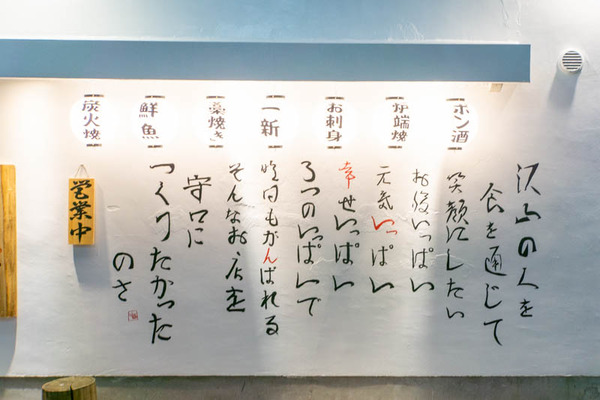 ホン酒
炉端焼
お刺身
一新
藁焼き
鮮魚
炭火焼
沢山の人を
食を通じて
笑顔にしたい
お腹いっぱい
元気いっぱい
幸せいっぱい
3つのいっぱいで
明日もがんばれる
そんなお店を
守口に
つくりたかった
のさ
営業中